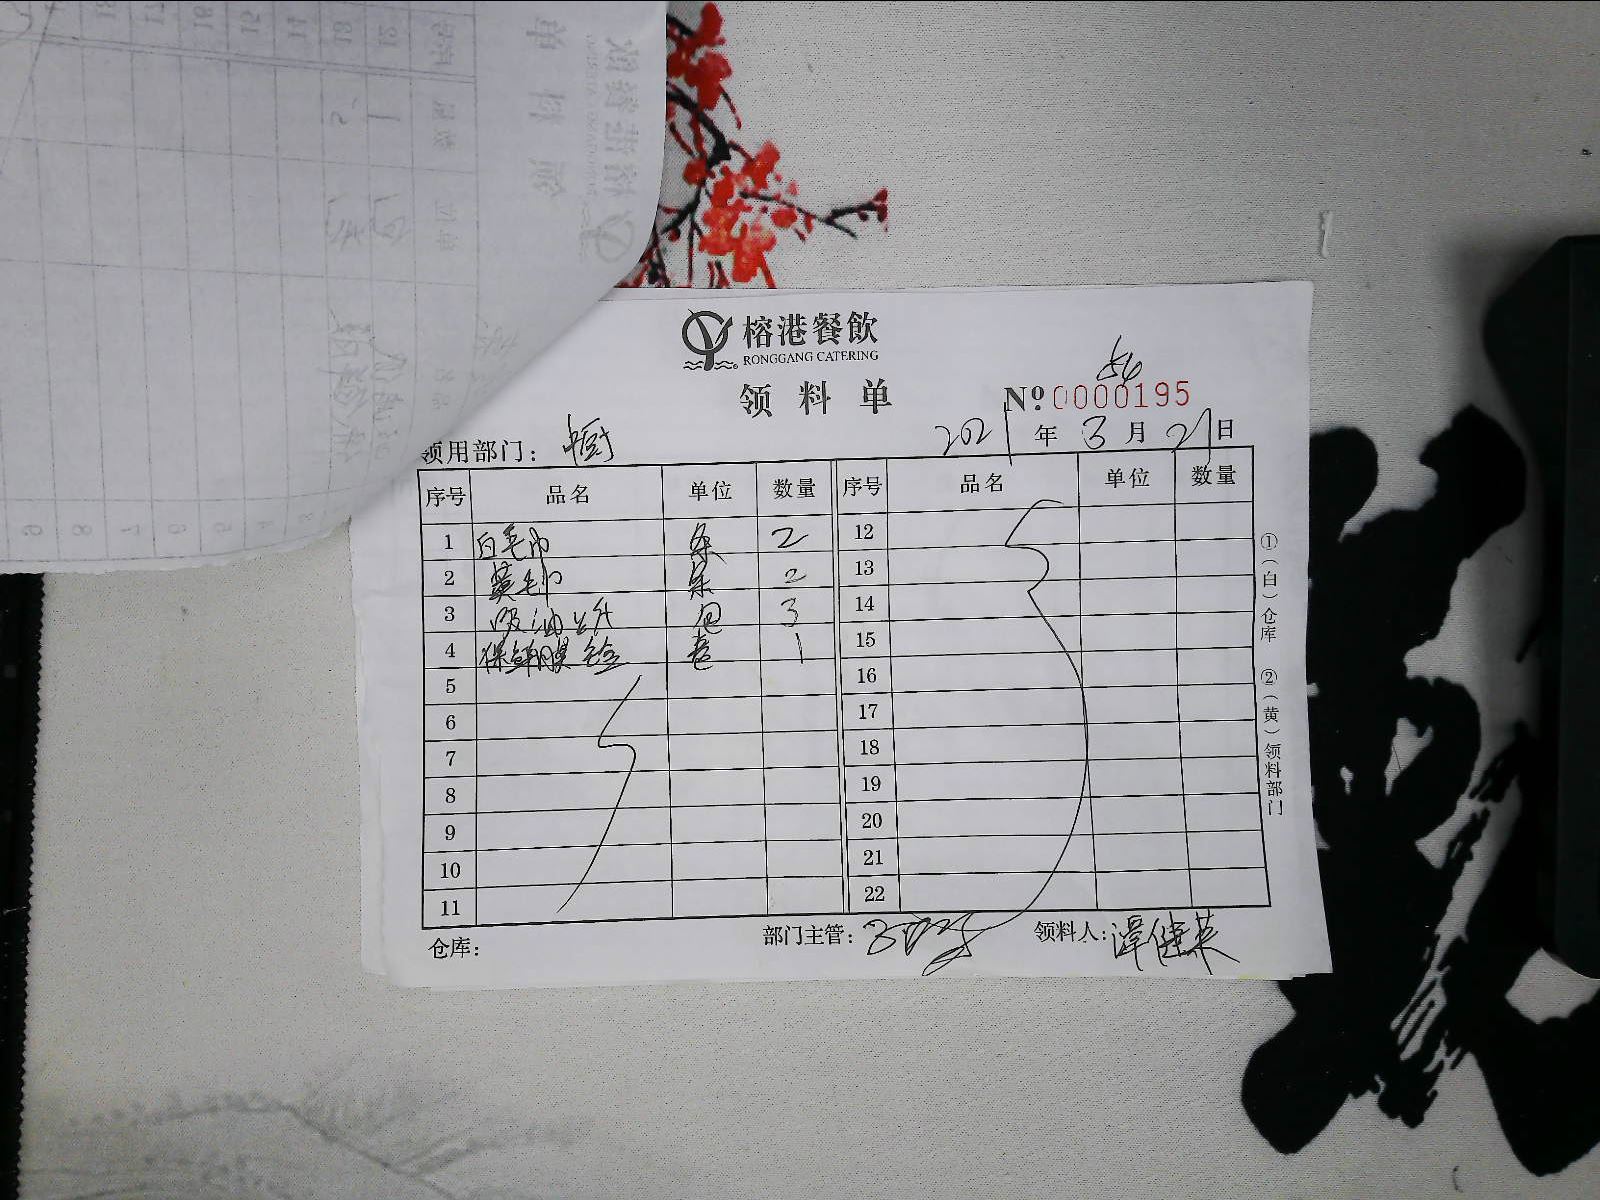 榕港餐飲
RONGGANG CATERING
领料单
54
Nº 0000195
领用部门: 中厨 2021年3月21日
序号 品名 单位 数量 序号 品名 单位 数量
1 白毛巾 条 2 12
2 黄毛巾 条 2 13
3 吸油纸 包 3 14
4 保鲜膜 卷 1 15
5 16
6 17
7 18
8 19
9 20
10 21
11 22
仓库: 部门主管: 领料人: 谭健英
①(白)仓库 ②(黄)领料部门